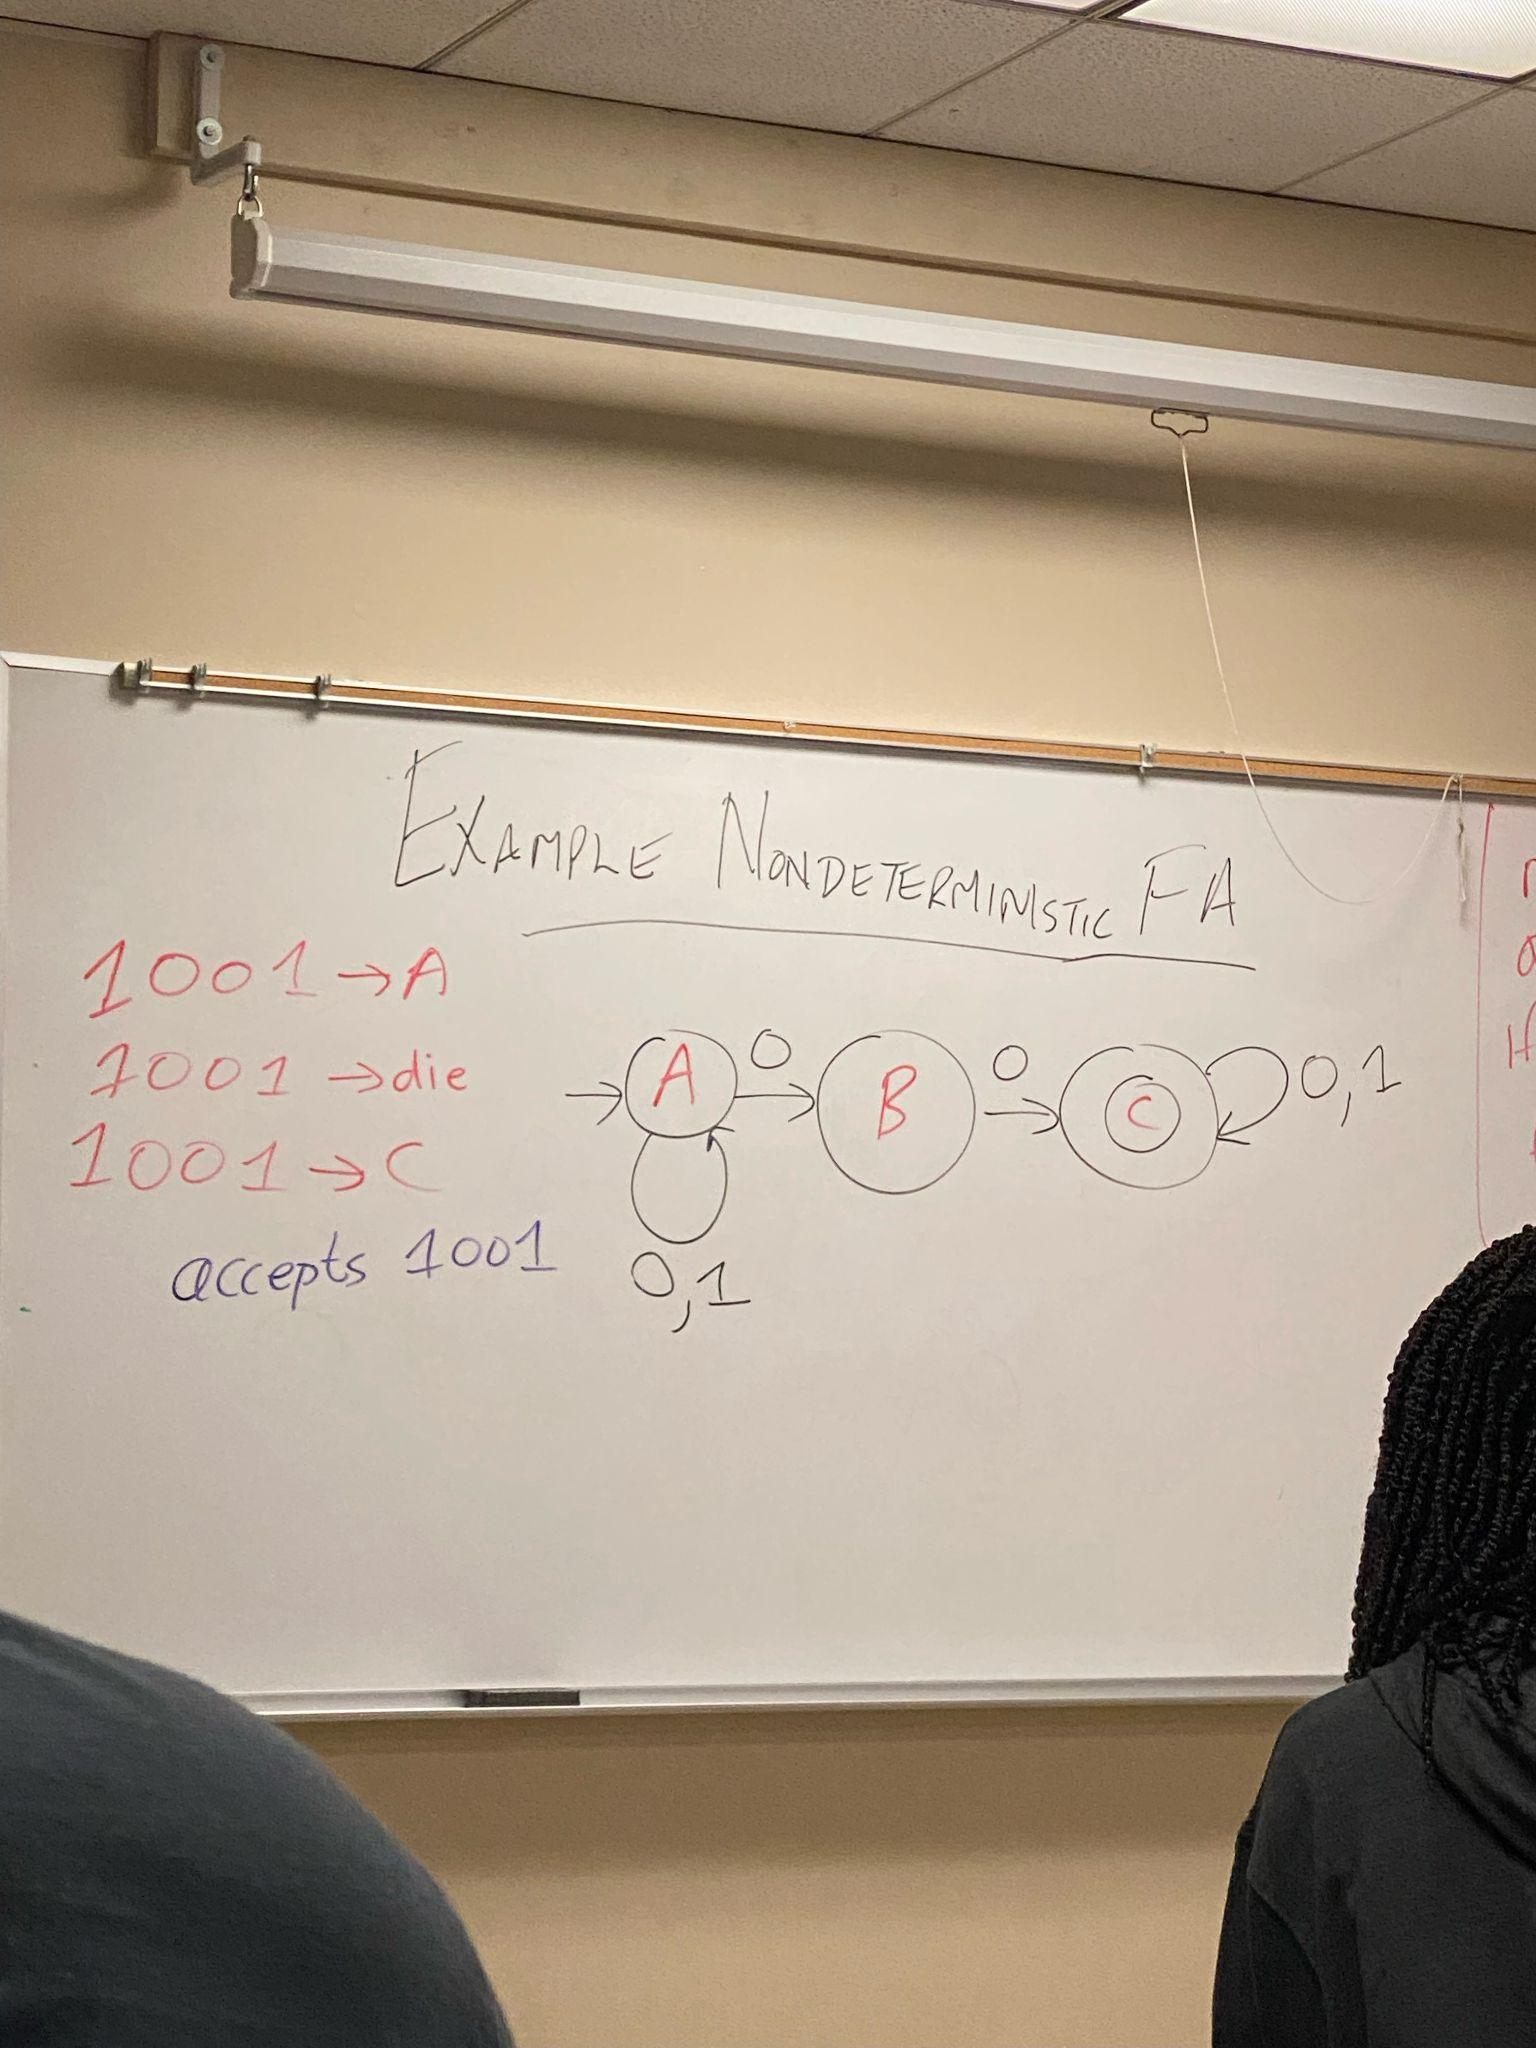 EXAMPLE NONDETERMINISTIC FA
1001 → A
1001 → die
1001 → C
accepts 1001
A 0 B 0 C 0,1
0,1